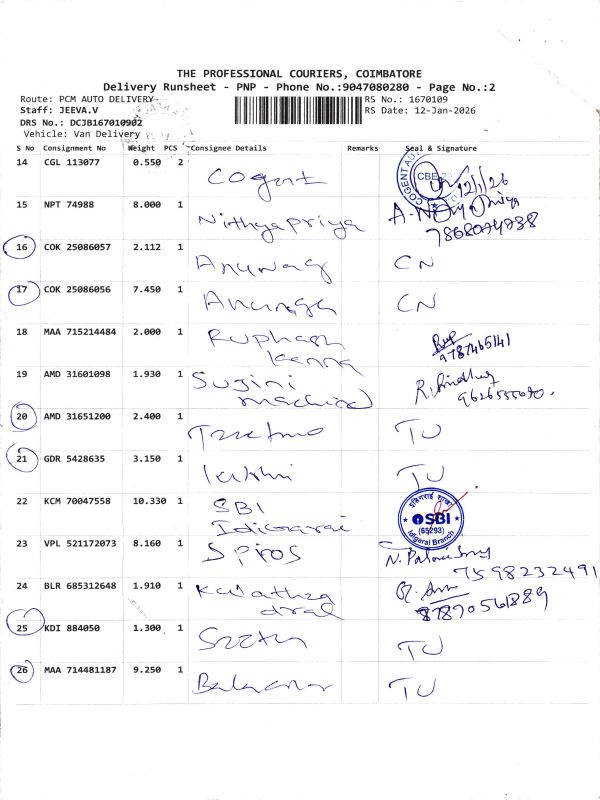 THE PROFESSIONAL COURIERS, COIMBATORE
Delivery Runsheet - PNP - Phone No.:9047080280 - Page No.:2
Route: PCM AUTO DELIVERY RS No.: 1670109
Staff: JEEVA.V RS Date: 12-Jan-2026
DRS No.: DCJB167010902
Vehicle: Van Delivery
S No Consignment No Weight PCS Consignee Details Remarks Seal & Signature
14 CGL 113077 0.550 2 Cogent COGENT CBE 12/1/26
15 NPT 74988 8.000 1 Nithyapriya
16 COK 25086057 2.112 1 Anurag CN
17 COK 25086056 7.450 1 CN
18 MAA 715214484 2.000 1
9787465141
19 AMD 31601098 1.930 1 Sujini
20 AMD 31651200 2.400 1 TU
21 GDR 5428635 3.150 1 TU
22 KCM 70047558 10.330 1 SBI
इडिगराई शाखा SBI (65293) Idigarai Branch
23 VPL 521172073 8.160 1 Spiros
7598232491
24 BLR 685312648 1.910 1
25 KDI 884050 1.300 1 TU
26 MAA 714481187 9.250 1 TU